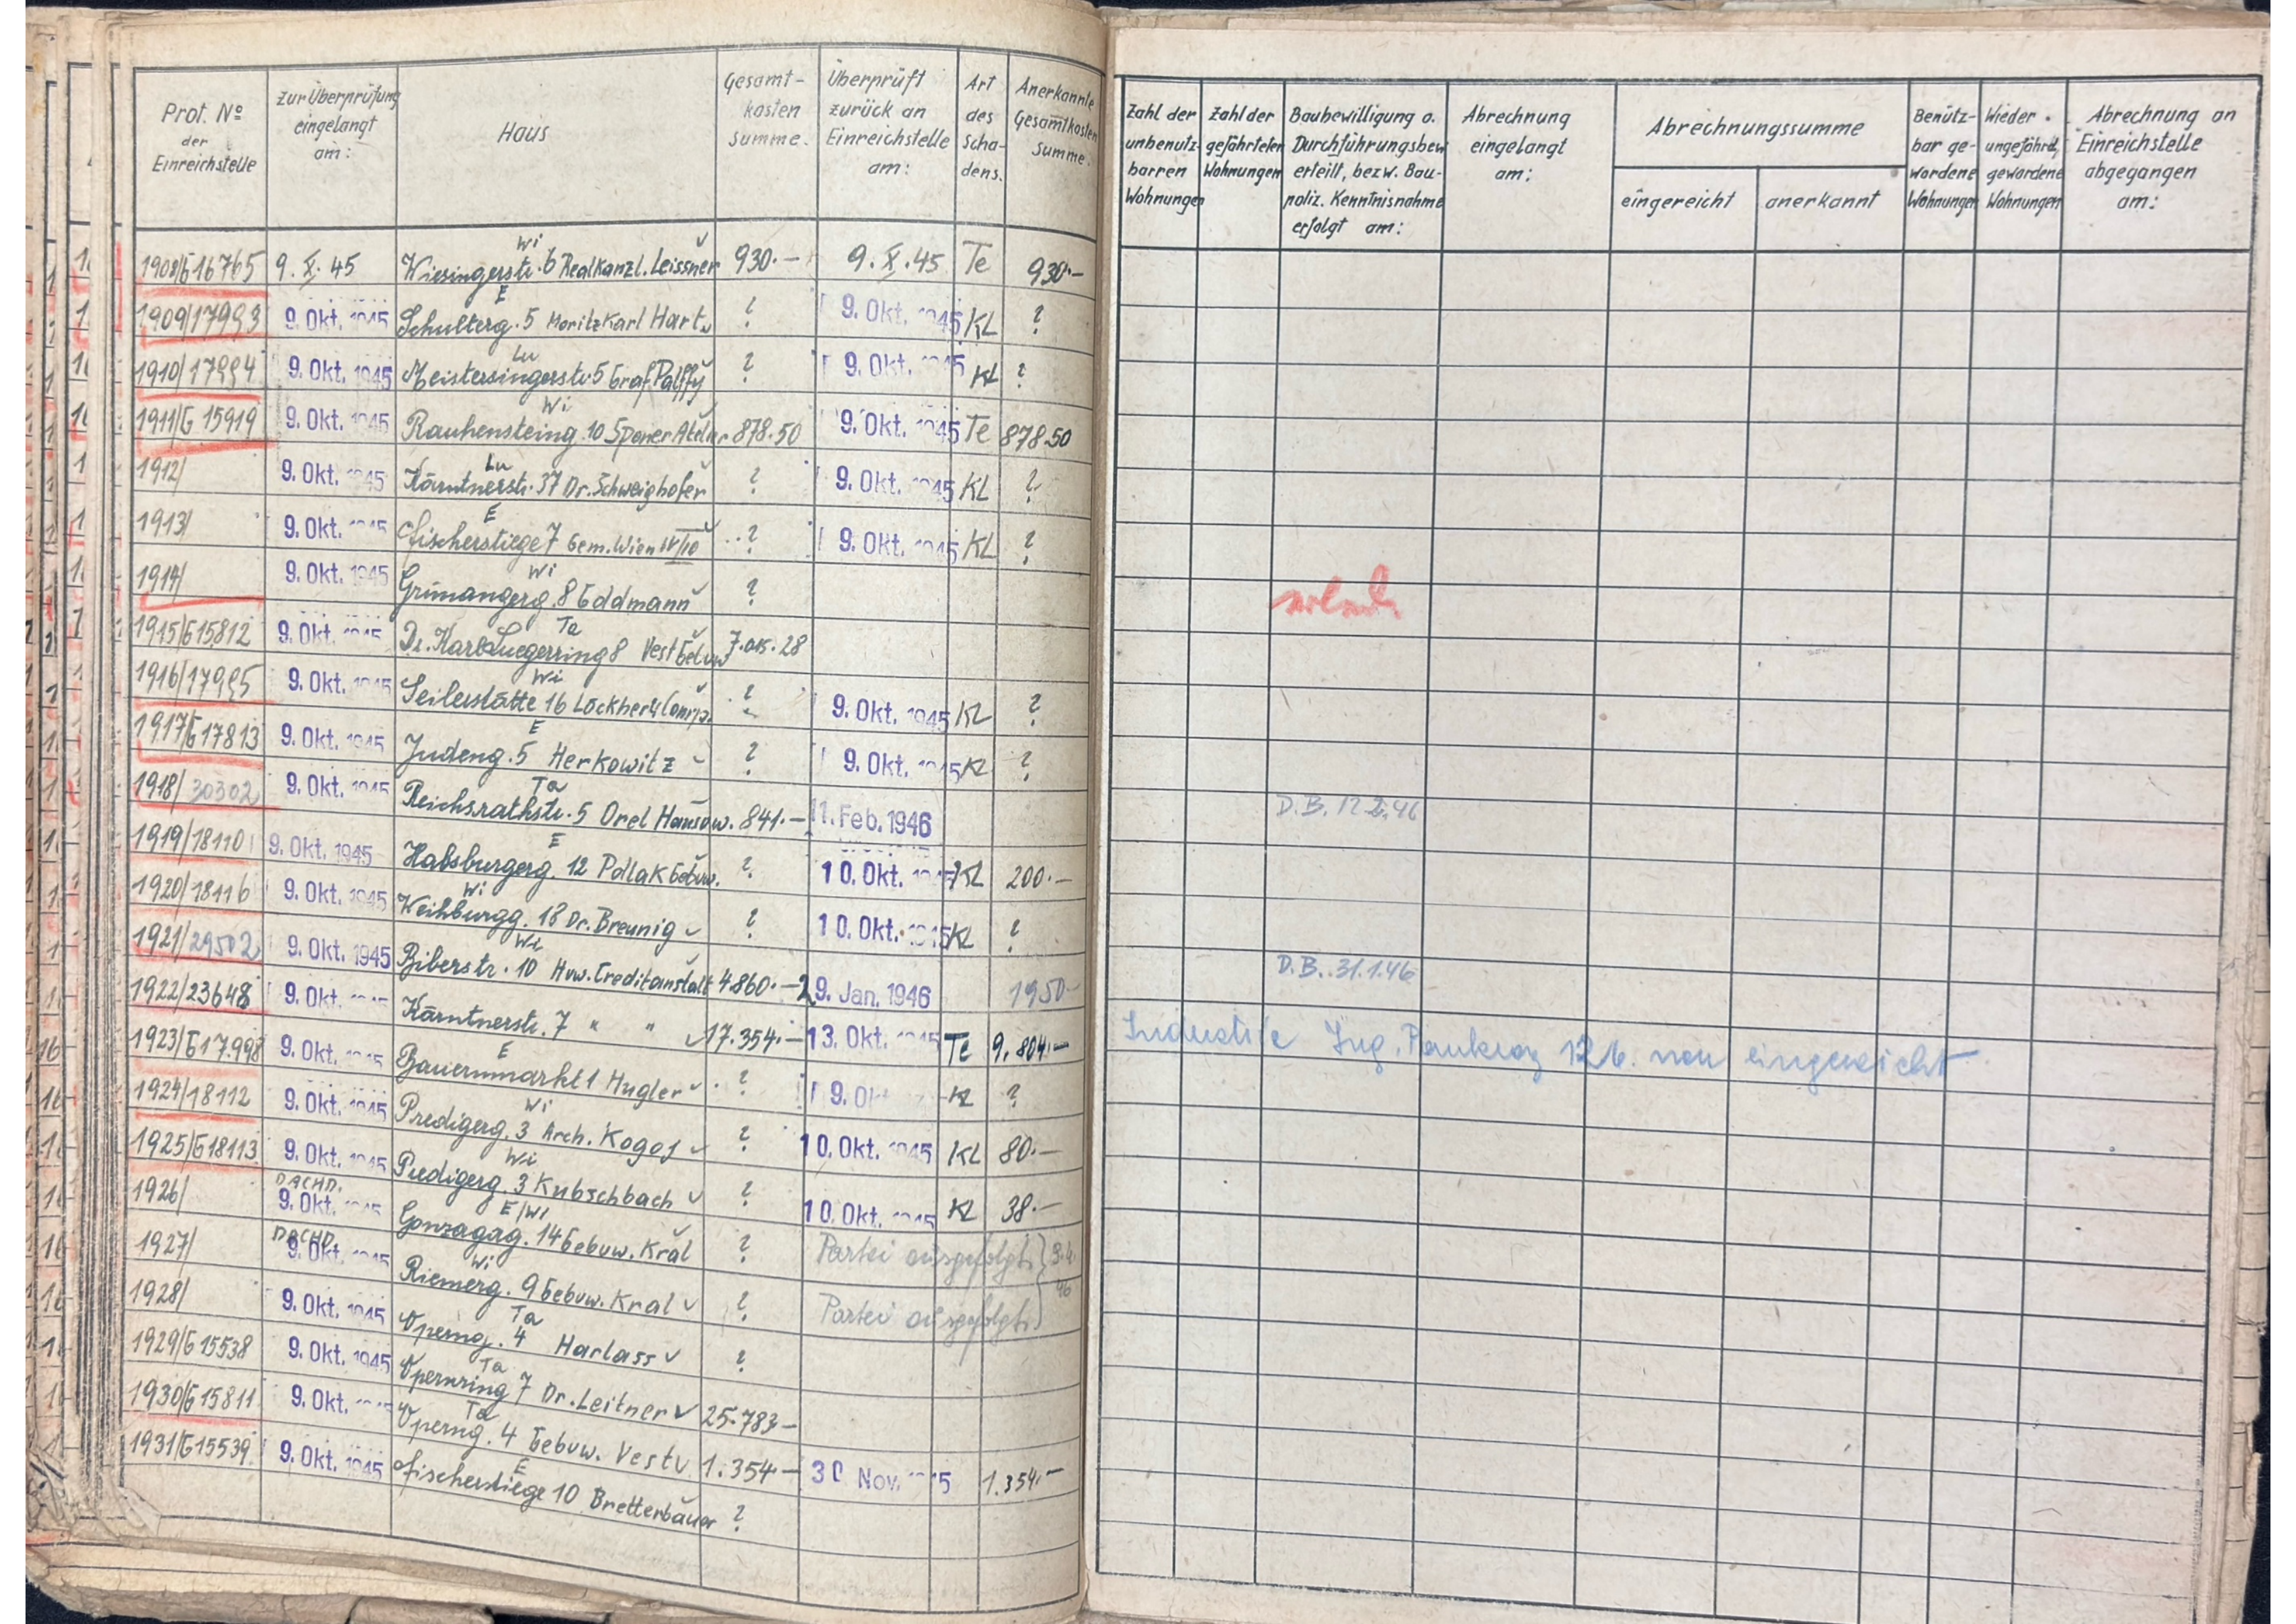 Prot. No der Einreichstelle | Zur Überprüfung eingelangt am: | Haus | Gesamt-kosten Summe. | Überprüft zurück an Einreichstelle am: | Art des Scha-dens. | Anerkannte Gesamtkosten Summe. | Zahl der unbenutz-barren Wohnungen | Zahl der gefährteten Wohnungen | Baubewilligung o. Durchführungsbew. erteilt, bezw. Bau-poliz. Kenntnisnahme erfolgt am: | Abrechnung eingelangt am: | Abrechnungssumme eingereicht | anerkannt | Benütz-bar ge-wordene Wohnungen | Wieder ungefährd. gewordene Wohnungen | Abrechnung an Einreichstelle abgegangen am:
1908/G16765 | 9.X.45 | Wi Wiesingerstr. 6 Realkanzl. Leissner | 930.- | 9.X.45 | Te | 930.-
1909/17993 | 9. Okt. 1945 | E Schulterg. 5 Moritz Karl Hart | ? | 9. Okt. 1945 | KL | ?
1910/17994 | 9. Okt. 1945 | Lu Meistersingerstr. 5 Graf Palffy | ? | 9. Okt. 1945 | KL | ?
1911/G 15919 | 9. Okt. 1945 | Wi Rauhensteing. 10 Sponer Atelier | 878.50 | 9. Okt. 1945 | Te | 878.50
1912/ | 9. Okt. 1945 | Lu Kärntnerstr. 37 Dr. Schweighofer | ? | 9. Okt. 1945 | KL | ?
1913/ | 9. Okt. 1945 | E Fischerstiege 7 Gem. Wien IV/10 | ? | 9. Okt. 1945 | KL | ?
1914/ | 9. Okt. 1945 | Wi Grünangerg. 8 Goldmann | ?
1915/G15812 | 9. Okt. 1945 | Ta Dr. Karl Luegerring 8 Vest Gebvw | 7.015.28
1916/17995 | 9. Okt. 1945 | Wi Seilerstätte 16 Lockher u Comp. | ? | 9. Okt. 1945 | KL | ?
1917/G17813 | 9. Okt. 1945 | E Judeng. 5 Herkowitz | ? | 9. Okt. 1945 | KL | ?
1918/30302 | 9. Okt. 1945 | Ta Reichsrathstr. 5 Orel Hausvw. | 841.- | 11. Feb. 1946 | D.B. 12.2.46
1919/18110 | 9. Okt. 1945 | E Habsburgerg. 12 Pollak Gebvw. | ? | 10. Okt. 1945 | KL | 200.-
1920/18116 | 9. Okt. 1945 | Wi Weihburgg. 18 Dr. Breunig | ? | 10. Okt. 1945 | KL | ?
1921/29502 | 9. Okt. 1945 | Wi Biberstr. 10 Hvw. Creditanstalt | 4.860.- | 29. Jan. 1946 | 1950.- | D.B. 31.1.46
1922/23648 | 9. Okt. | Kärntnerstr. 7 " " | 17.354.- | 13. Okt. 1945 | Te | 9.804.- | Industrie Ing. Pankraz 126. neu eingereicht
1923/G17.998 | 9. Okt. 1945 | E Bauernmarkt 1 Hugler | ? | 9. Okt. | KL | ?
1924/18112 | 9. Okt. 1945 | Wi Predigerg. 3 Arch. Kogoj | ? | 10. Okt. 1945 | KL | 80.-
1925/G18113 | 9. Okt. 1945 | Wi Predigerg. 3 Kubschbach | ? | 10. Okt. 1945 | KL | 38.-
1926/ | DACHD. 9. Okt. 1945 | E/Wi Gonzagag. 14 Gebvw. Kral | ? | Partei ausgefolgt. } 3.4.
1927/ | DACHD. 9. Okt. 1945 | Wi Riemerg. 9 Gebvw. Kral | ? | Partei ausgefolgt. } 46
1928/ | 9. Okt. 1945 | Ta Operng. 4 Harlass | ?
1929/G 15538 | 9. Okt. 1945 | Ta Opernring 7 Dr. Leitner | 25.783-
1930/G15811 | 9. Okt. | Ta Operng. 4 Gebvw. Vest | 1.354.- | 30 Nov. 1945 | 1.354.-
1931/G15539 | 9. Okt. 1945 | E Fischerstiege 10 Bretterbauer | ?